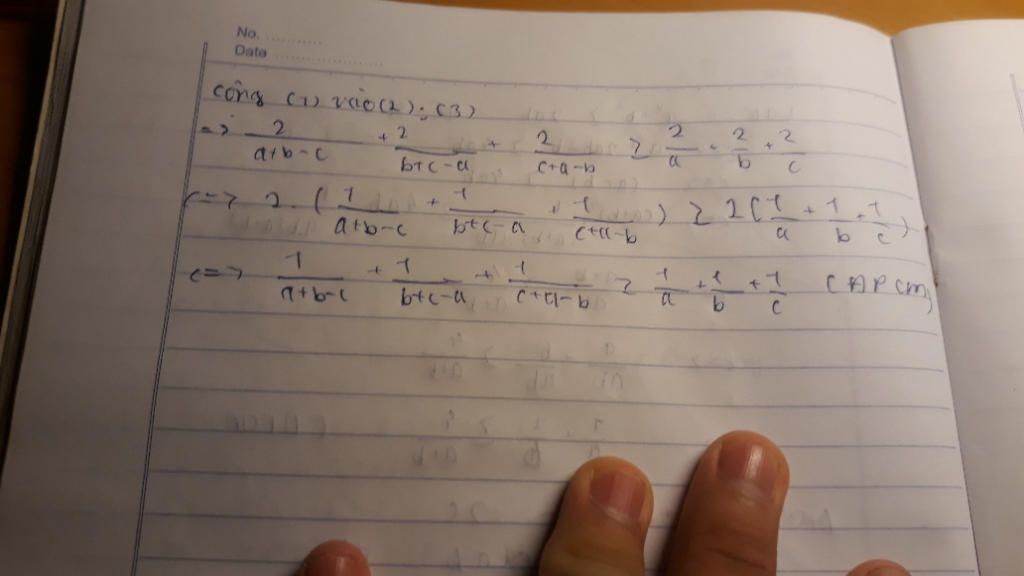 No. ............
Date ......................
cộng (1) vào (2), (3)
=> 2/(a+b-c) + 2/(b+c-a) + 2/(c+a-b) ≥ 2/a + 2/b + 2/c
<=> 2. (1/(a+b-c) + 1/(b+c-a) + 1/(c+a-b)) ≥ 2(1/a + 1/b + 1/c)
<=> 1/(a+b-c) + 1/(b+c-a) + 1/(c+a-b) ≥ 1/a + 1/b + 1/c (ĐPCM)